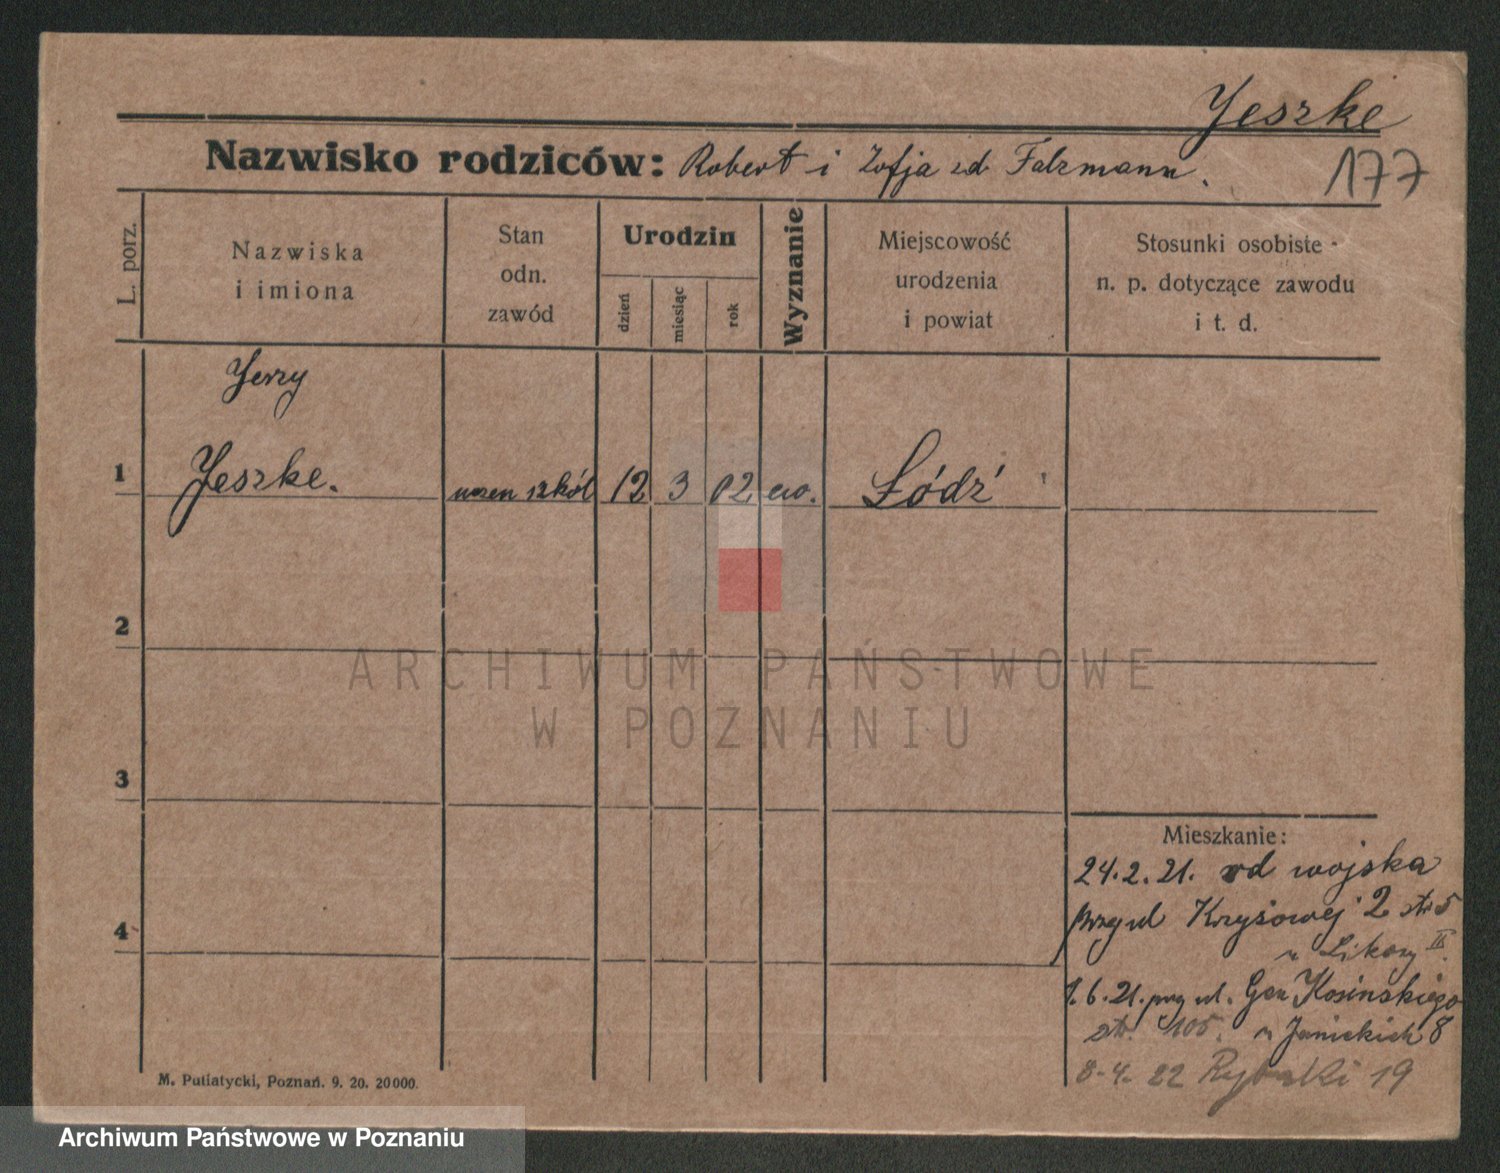 Jeszke
Nazwisko rodziców: Robert i Zofja zd Falzmann.
177
L. porz.
Nazwiska
i imiona
Stan
odn.
zawód
Urodzin
dzień
miesiąc
rok
Wyznanie
Miejscowość
urodzenia
i powiat
Stosunki osobiste
n. p. dotyczące zawodu
i t. d.
Jerzy
1 Jeszke. uczen szkół 12 3 02 ew. Łódź
2
3
4
Mieszkanie:
24.2.21. od wojska
przy ul Krzyżowej 2 str 5
u Sikory II.
1.6.21. przy ul. Gen Kosinskiego
str. 105. u Janickich 8
8.4.22 Rybaki 19
M. Putiatycki, Poznań. 9. 20. 20000.
ARCHIWUM PAŃSTWOWE
W POZNANIU
Archiwum Państwowe w Poznaniu